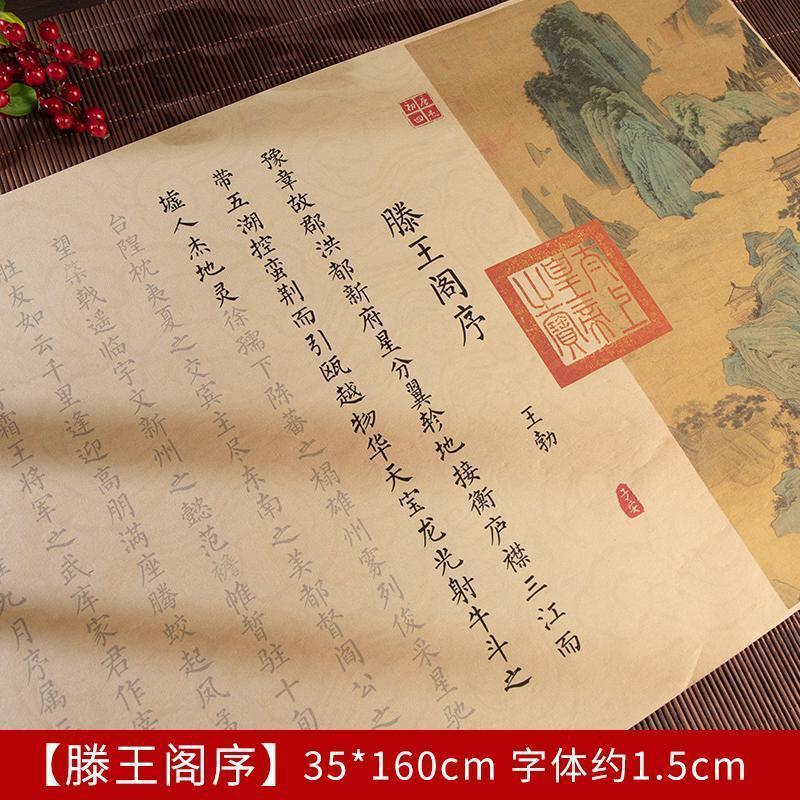 太上皇帝之寶
初唐四杰
滕王阁序
王勃
子安
豫章故郡洪都新府星分翼轸地接衡庐襟三江而
带五湖控蛮荆而引瓯越物华天宝龙光射牛斗之
墟人杰地灵徐孺下陈蕃之榻雄州雾列俊采星驰
台隍枕夷夏之交宾主尽东南之美都督阎公之
望棨戟遥临宇文新州之懿范襜帷暂驻十旬
胜友如云千里逢迎高朋满座腾蛟起凤孟
霜王将军之武库家君作宰
九月序属三
【滕王阁序】35*160cm 字体约1.5cm